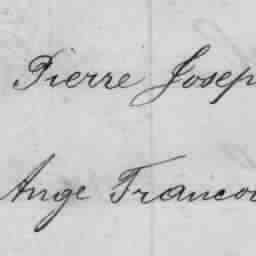 Pierre Josep
Ange Francoi